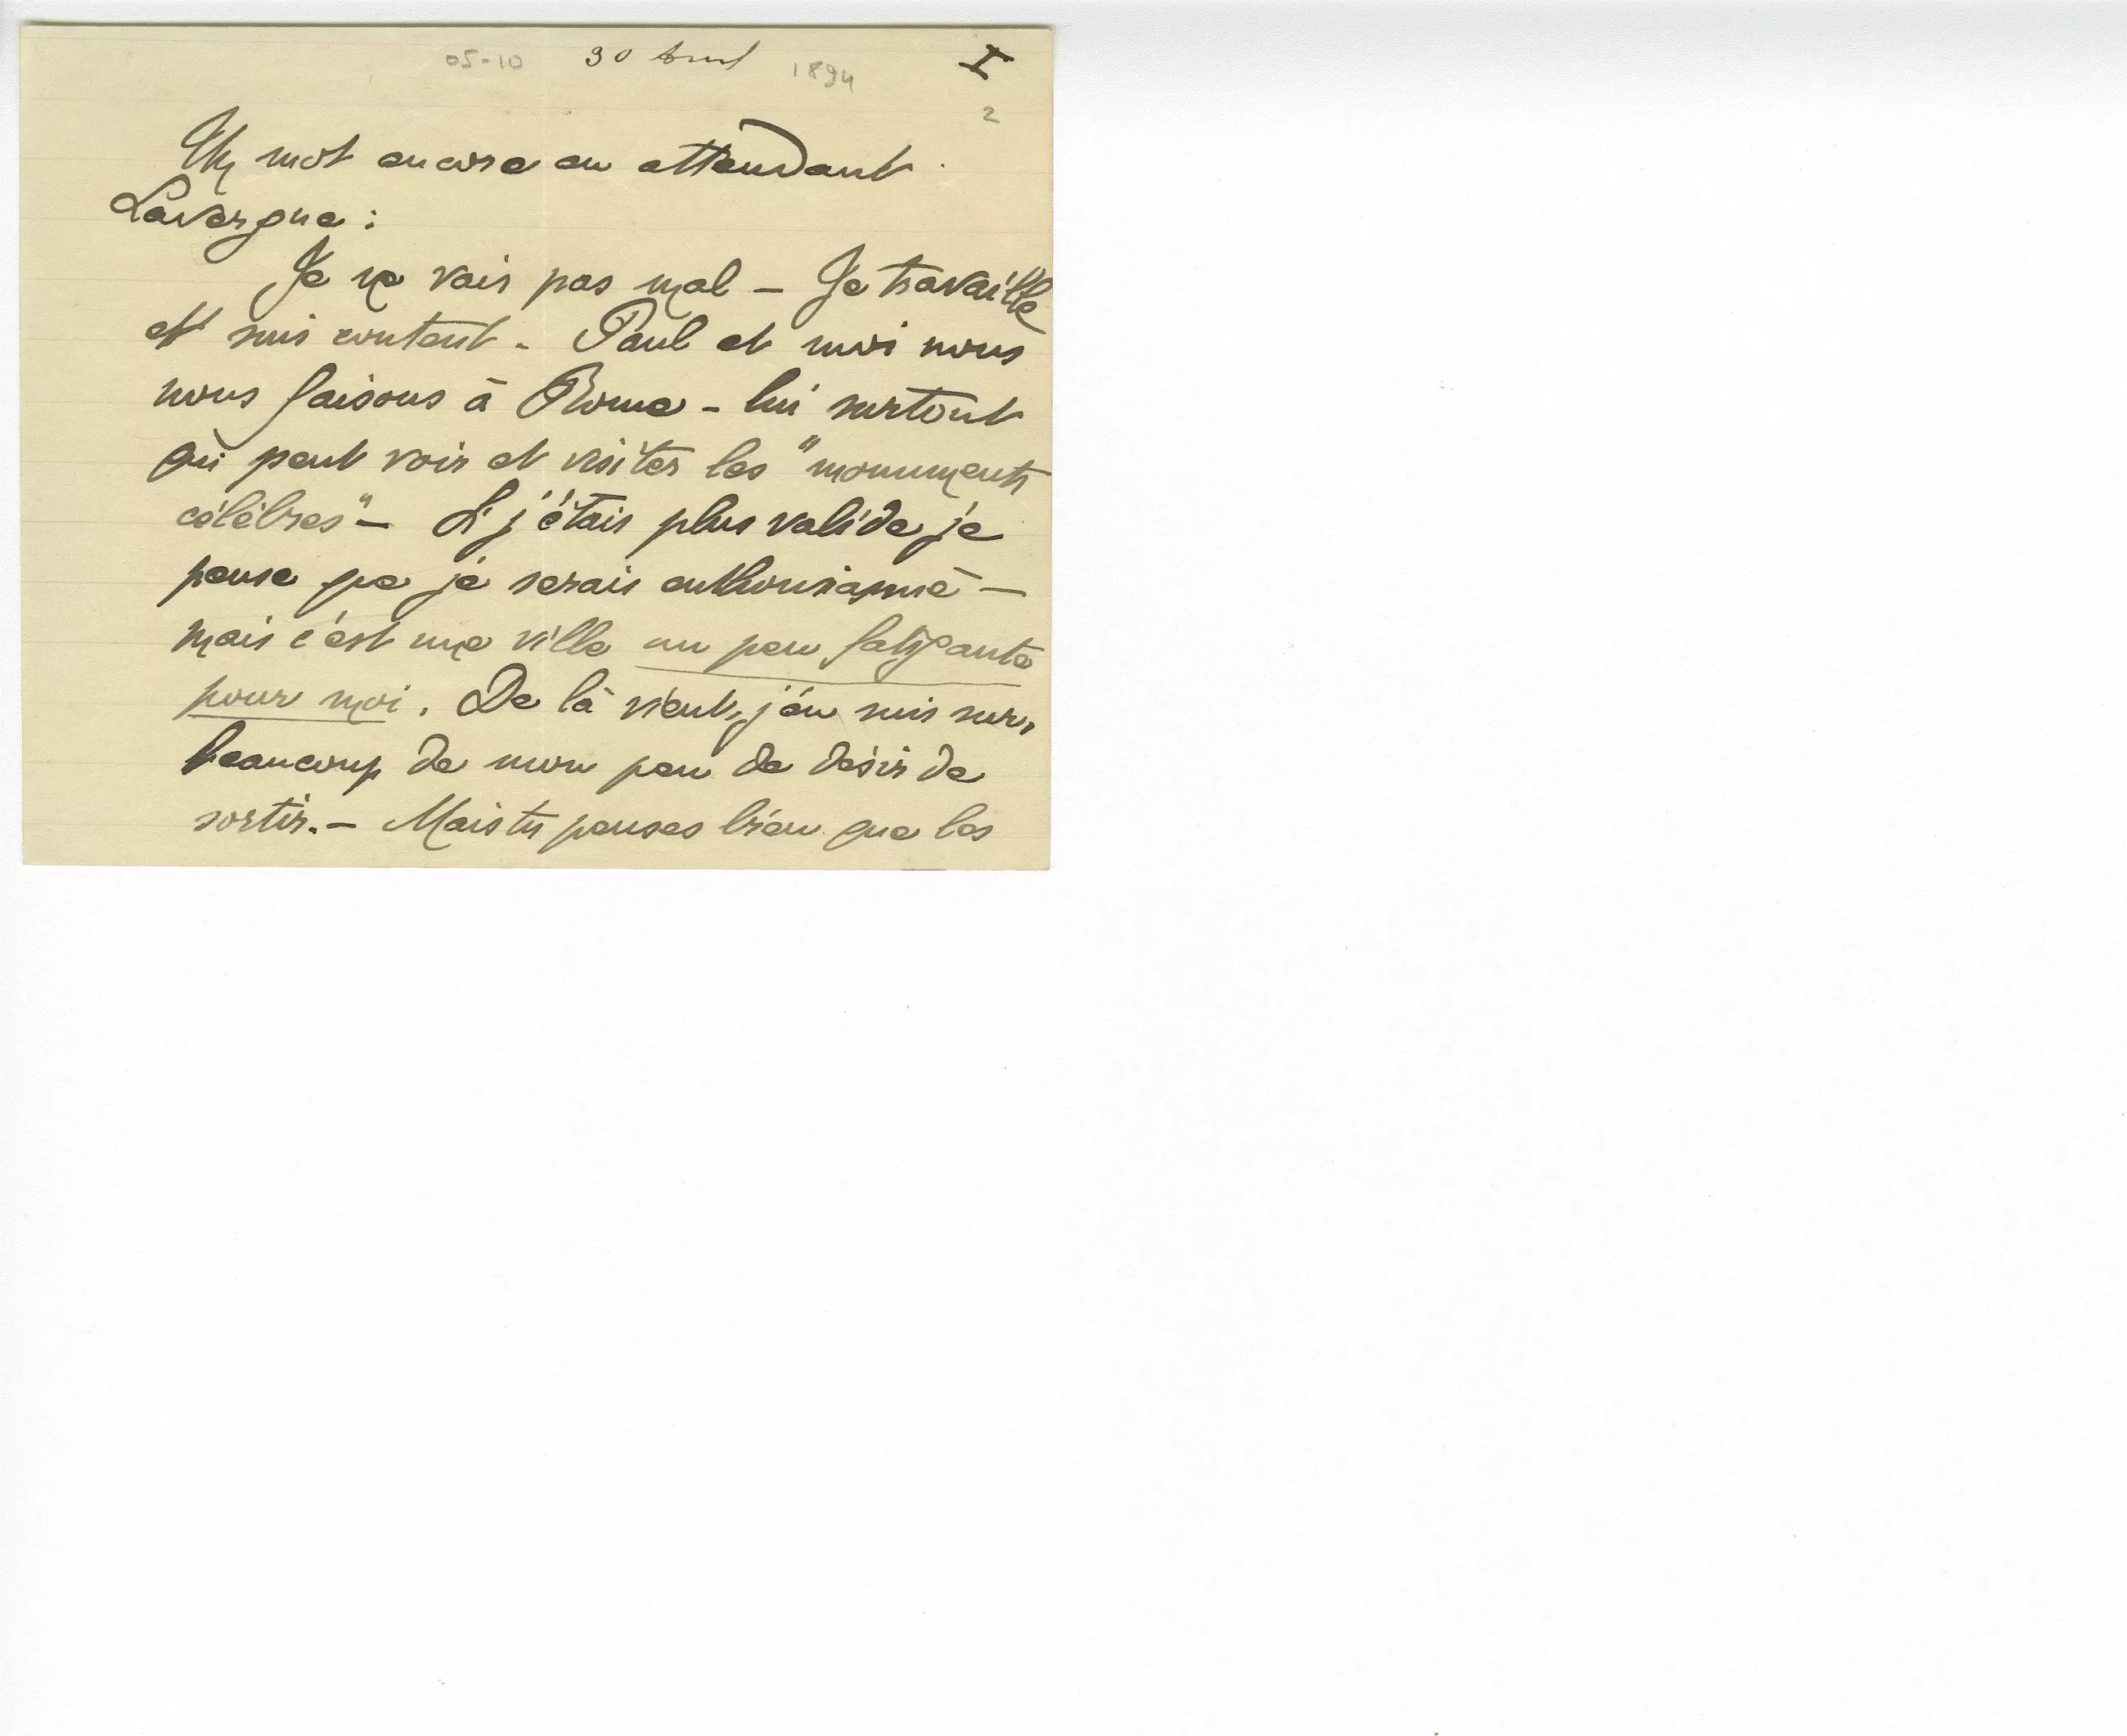 05-10 30 Avril 1894 I
2
Un mot encore en attendant
Lavergne :
Je ne vais pas mal – Je travaille
et suis content - Paul et moi nous
nous faisons à Rome - lui surtout
qui peut voir et visiter les "monuments
célèbres" – Si j'étais plus valide je
pense que je serais enthousiasmé –
mais c'est une ville un peu fatigante
pour moi. De là vient, j'en suis sur,
beaucoup de mon peu de désir de
sortir. – Mais tu penses bien que les